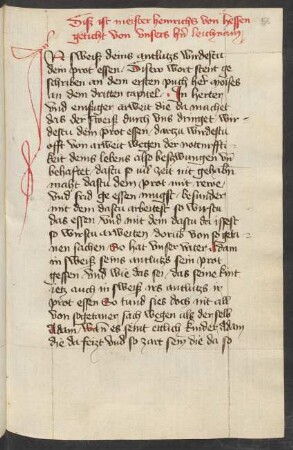 Diß ist meister heinrichs von hessen
geticht von unsers hern leichnam
In sweiß deins antlutz windestu
dein prot essen / Diser wort stent ge
schriben an dem ersten puch her moises
an dem dritten capitel . In herter
und emsiger arweit die da machet
das der sweiß durch uns dringet wir
destu dein prot essen / darzu windestu
offt von arweit wegen der notturffti
keit deins lebens also
behaftet dastu so vil zeit nit gehaben
macht dastu dein prot mit rewe
und frid ge essen mugst / besunder
mit dem dastu arbeitest so wirstu
das essen / und mit dem dastu do issest
so wirstu arweiten
nen sachen / So hat unser vater Adam
in sweiß seins antlutz sein prot
gessen / und wie das sei / das seine kint
auch in sweiß irs antlutz ir
prot essen So tund sies doch nit all
von sogetaner sach wegen als derselb
Adam / wan es seint etlich kinder Adam
die da und so zart sein die da so